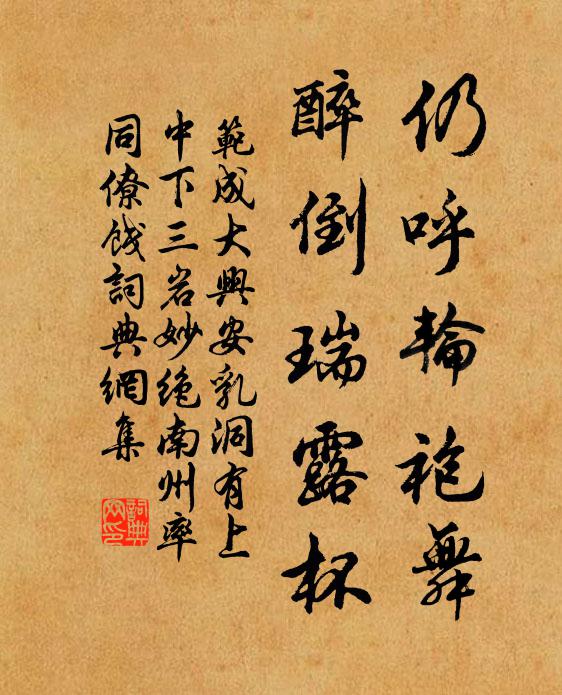 仍呼輪袍舞
醉倒瑞露杯
範成大興安乳洞有上
中下三岩妙绝南州率
同僚餞詞典網集
詞典
网印